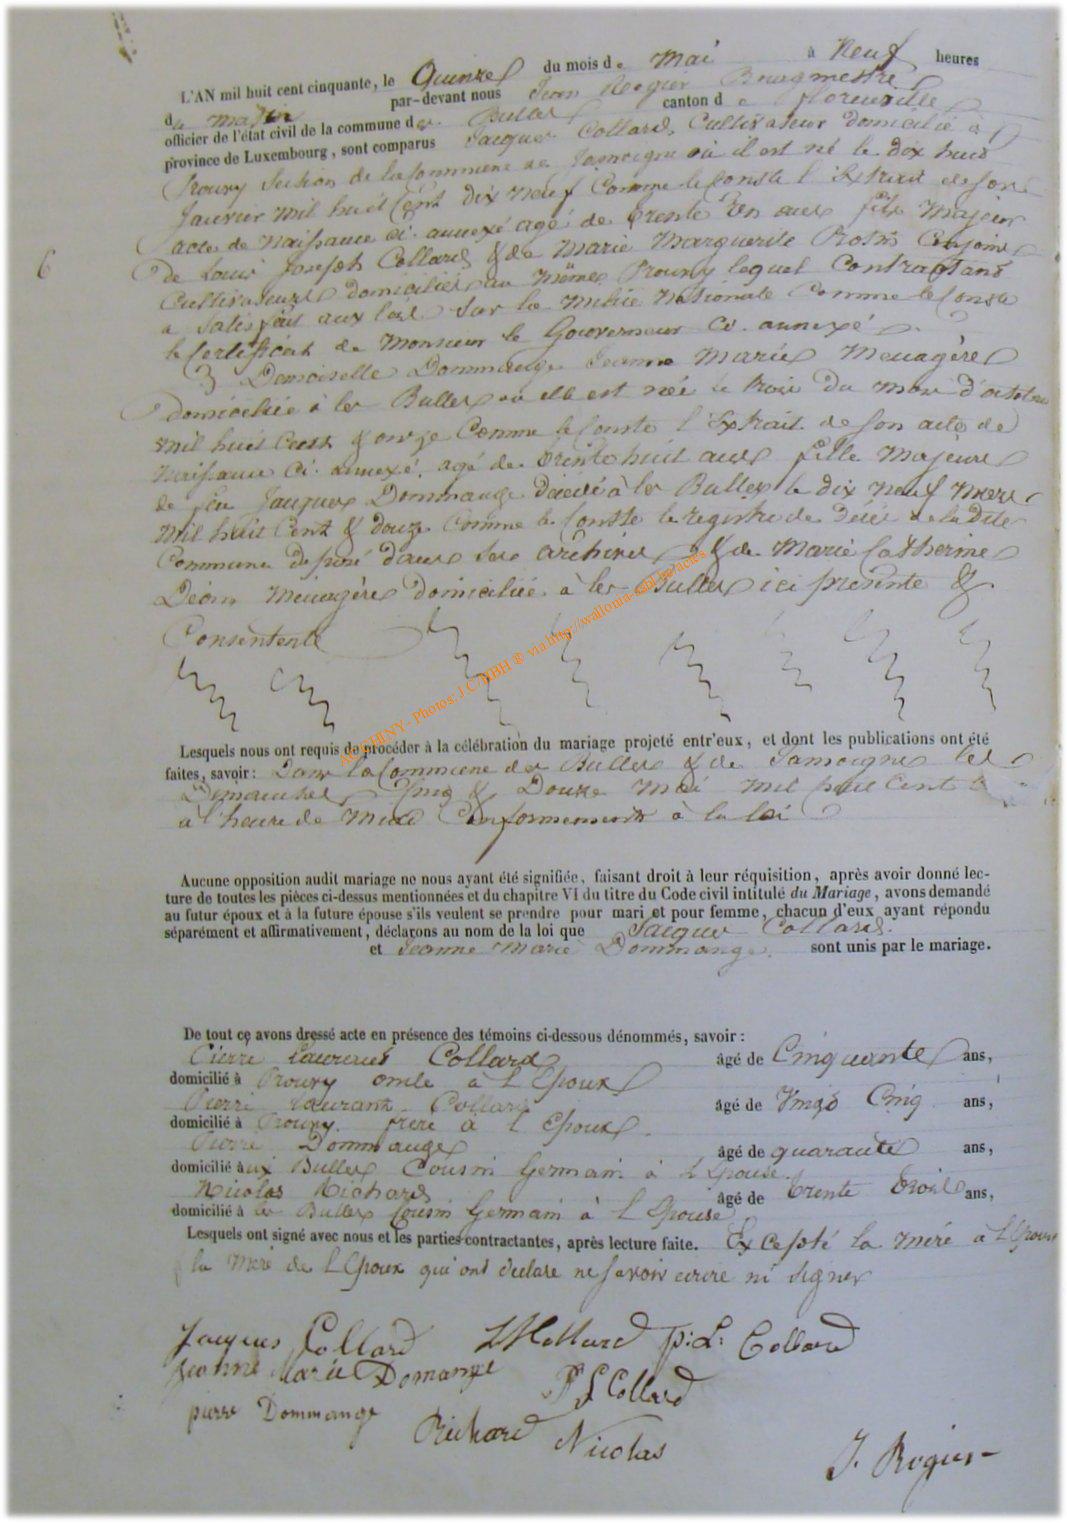 L'AN mil huit cent cinquante, le Quinze du mois de Mai à Neuf heures
du matin par-devant nous Jean Rogier Bourgmestre
officier de l'état civil de la commune des Bulles canton de florenville
province de Luxembourg, sont comparus Jacques Collard, Cultivateur domicilié à
Prouvy Section de la Commune de Jamoigne où il est né le dix huit
Janvier mil huit Cent dix neuf Comme le Conste l'Extrait de son
acte de Naissance ci-annexé agé de trente un ans fils Majeur
6
de Louis Joseph Collard & de Marie Marguerite Conjoints
Cultivateurs domiciliés au même Prouvy lequel Contractant
a Satisfait aux lois Sur la Milice Nationale Comme le Conste
le Certificat de Monsieur le Gouverneur Ci-annexé.
& Demoiselle Dommange Jeanne Marie Menagère
domiciliée à les Bulles où elle est née le trois du mois d'octobre
mil huit Cent & onze Comme le Conste l'Extrait de son acte de
Naissance ci-annexé, agé de trente huit ans fille Majeure
de feu Jacques Dommange décédé à les Bulles le dix neuf Mars
Mil huit Cent & douze Comme le Conste le registre de décès de la dite
Commune déposé dans ses archives & de Marie Catherine
Déom Menagère domiciliée à les Bulles ici presente &
Consentente
AC CHINY - Photos: J.C. MBH ® via http://wallonia-
Lesquels nous ont requis de procéder à la célébration du mariage projeté entr'eux, et dont les publications ont été
faites, savoir: Dans la Commune des Bulles & de Jamoigne les
Dimanches Cinq & Douze Mai Mil huit Cent
à l'heure de Midi Conformement à la loi
Aucune opposition audit mariage ne nous ayant été signifiée, faisant droit à leur réquisition, après avoir donné lec-
ture de toutes les pièces ci-dessus mentionnées et du chapitre VI du titre du Code civil intitulé du Mariage, avons demandé
au futur époux et à la future épouse s'ils veulent se prendre pour mari et pour femme, chacun d'eux ayant répondu
séparément et affirmativement, déclarons au nom de la loi que Jacques Collard.
et Jeanne Marie Dommange. sont unis par le mariage.
De tout ce avons dressé acte en présence des témoins ci-dessous dénommés, savoir:
Pierre Laurent Collard âgé de Cinquante ans,
domicilié à Prouvy oncle à l'Epoux
Pierre Laurant Collard âgé de Vingt Cinq ans,
domicilié à Prouvy. frere à l'Epoux.
Pierre Dommange âgé de quarante ans,
domicilié aux Bulles Cousin Germain à l'Epouse.
Nicolas Richard âgé de trente trois ans,
domicilié à les Bulles Cousin Germain à l'Epouse
Lesquels ont signé avec nous et les parties contractantes, après lecture faite. Excepté la mère à l'Epouse
la Mère de l'Epoux qui ont declare ne savoir ecrire ni signer
Jacques Collard L J Collard p: L: Collard
Jeanne Marie Domange P L Collard
pierre Dommange Richard Nicolas
J. Rogier